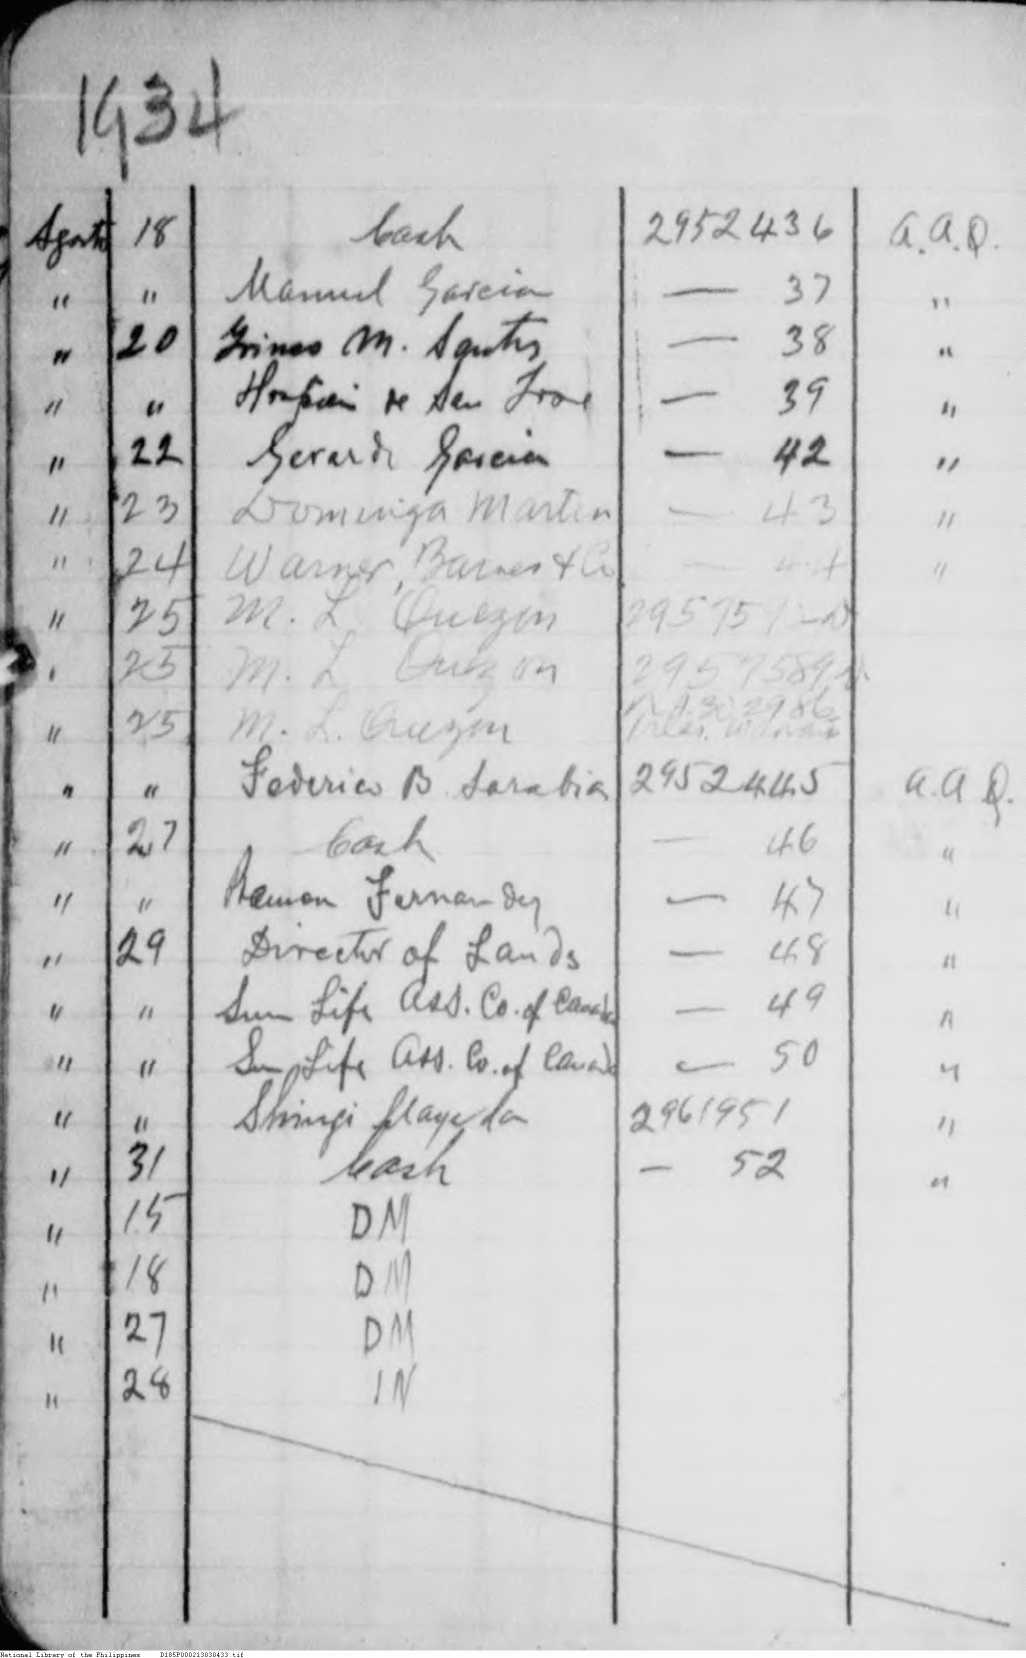 1934
Agosto 18 Cash 2952436 A.A.Q.
" " Manuel Garcia — 37 "
" 20 M. — 38 "
" " de San Jose — 39 "
" 22 Gerardo Garcia — 42 "
" 23 Dominga Martin — 43 "
" 24 Warner, Barnes & Co — 44 "
" 25 M. L. Quezon
" 25 M. L. Quezon
" 25 M. L. Quezon
" " Federico B. Sarabia 2952445 A.A.Q.
" 27 Cash — 46 "
" " Ramon Fernandez — 47 "
" 29 Director of Lands — 48 "
" " Sun Life Ass. Co. of Canada — 49 "
" " Sun Life Ass. Co. of Canada — 50 "
" " Shingi 2961951 "
" 31 Cash — 52 "
" 15 DM
" 18 DM
" 27 DM
" 28 IN
National Library of the Philippines D185P000213030433.tif